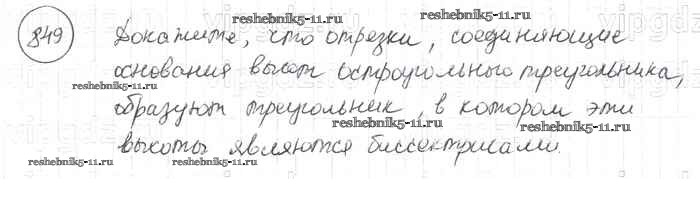 reshebnik5-11.ru
849 Докажите, что отрезки, соединяющие
основания высот остроугольного треугольника,
reshebnik5-11.ru
образуют треугольник, в котором эти
reshebnik5-11.ru reshebnik5-11.ru
высоты являются биссектрисами.
reshebnik5-11.ru reshebnik5-11.ru